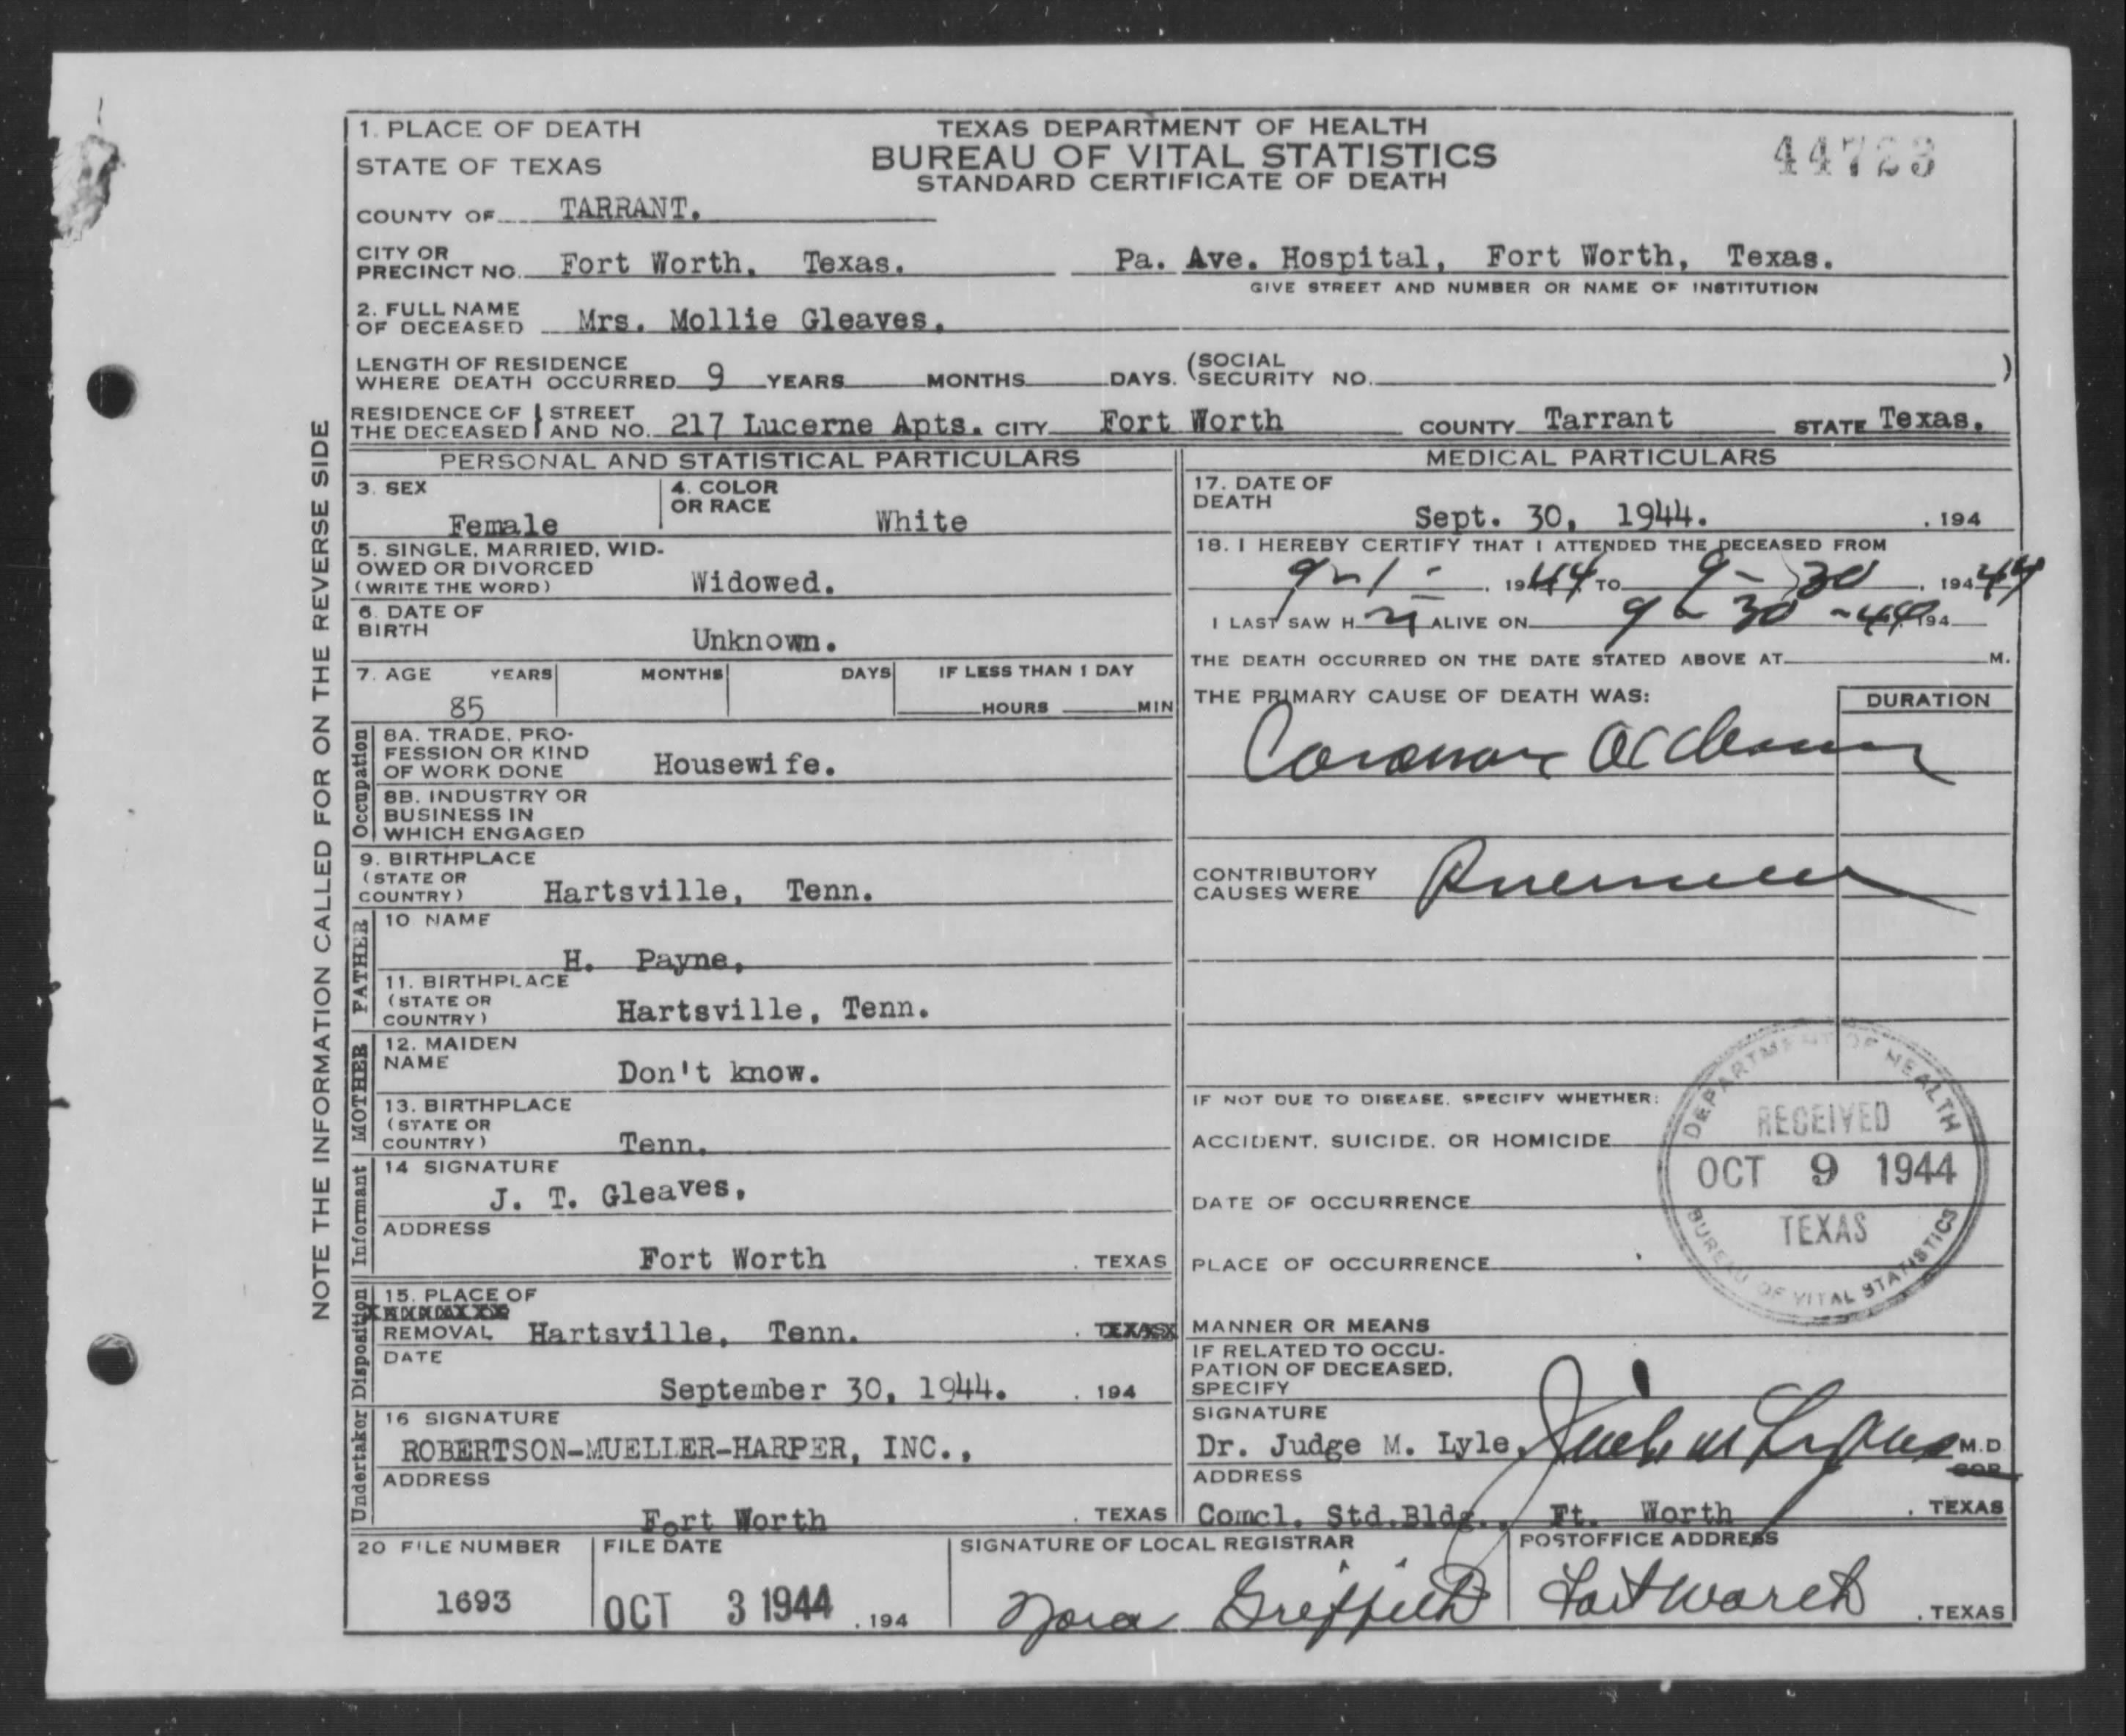 NOTE THE INFORMATION CALLED FOR ON THE REVERSE SIDE
1. PLACE OF DEATH
STATE OF TEXAS
TEXAS DEPARTMENT OF HEALTH
BUREAU OF VITAL STATISTICS
STANDARD CERTIFICATE OF DEATH
44723
COUNTY OF TARRANT.
CITY OR PRECINCT NO. Fort Worth, Texas. Pa. Ave. Hospital, Fort Worth, Texas.
GIVE STREET AND NUMBER OR NAME OF INSTITUTION
2. FULL NAME OF DECEASED Mrs. Mollie Gleaves.
LENGTH OF RESIDENCE WHERE DEATH OCCURRED 9 YEARS MONTHS DAYS. (SOCIAL SECURITY NO. )
RESIDENCE OF THE DECEASED STREET AND NO. 217 Lucerne Apts. CITY Fort Worth COUNTY Tarrant STATE Texas.
PERSONAL AND STATISTICAL PARTICULARS
3. SEX Female
4. COLOR OR RACE White
5. SINGLE, MARRIED, WIDOWED OR DIVORCED (WRITE THE WORD) Widowed.
6. DATE OF BIRTH Unknown.
7. AGE YEARS MONTHS DAYS IF LESS THAN 1 DAY
85 HOURS MIN
Occupation
8A. TRADE, PROFESSION OR KIND OF WORK DONE Housewife.
8B. INDUSTRY OR BUSINESS IN WHICH ENGAGED
9. BIRTHPLACE (STATE OR COUNTRY) Hartsville, Tenn.
FATHER
10 NAME H. Payne,
11. BIRTHPLACE (STATE OR COUNTRY) Hartsville, Tenn.
MOTHER
12. MAIDEN NAME Don't know.
13. BIRTHPLACE (STATE OR COUNTRY) Tenn.
Informant
14 SIGNATURE J. T. Gleaves,
ADDRESS Fort Worth , TEXAS
Disposition
15. PLACE OF
REMOVAL Hartsville, Tenn. , TEXAS
DATE September 30, 1944. , 194
Undertaker
16 SIGNATURE
ROBERTSON-MUELLER-HARPER, INC.,
ADDRESS Fort Worth , TEXAS
MEDICAL PARTICULARS
17. DATE OF DEATH Sept. 30, 1944. , 194
18. I HEREBY CERTIFY THAT I ATTENDED THE DECEASED FROM
9-1- , 1944 TO 9-30 , 194 44
I LAST SAW H ALIVE ON 9-30-44 194
THE DEATH OCCURRED ON THE DATE STATED ABOVE AT M.
THE PRIMARY CAUSE OF DEATH WAS: DURATION
Coronary Occlusion
CONTRIBUTORY CAUSES WERE
IF NOT DUE TO DISEASE, SPECIFY WHETHER:
ACCIDENT, SUICIDE, OR HOMICIDE
DATE OF OCCURRENCE
PLACE OF OCCURRENCE
MANNER OR MEANS
IF RELATED TO OCCUPATION OF DECEASED, SPECIFY
DEPARTMENT OF HEALTH
RECEIVED
OCT 9 1944
TEXAS
BUREAU OF VITAL STATISTICS
SIGNATURE
Dr. Judge M. Lyle, M.D.
COR.
ADDRESS
Comcl. Std.Bldg., Ft. Worth , TEXAS
20 FILE NUMBER 1693
FILE DATE OCT 3 1944 , 194
SIGNATURE OF LOCAL REGISTRAR Nora Griffith
POSTOFFICE ADDRESS Fort Worth , TEXAS